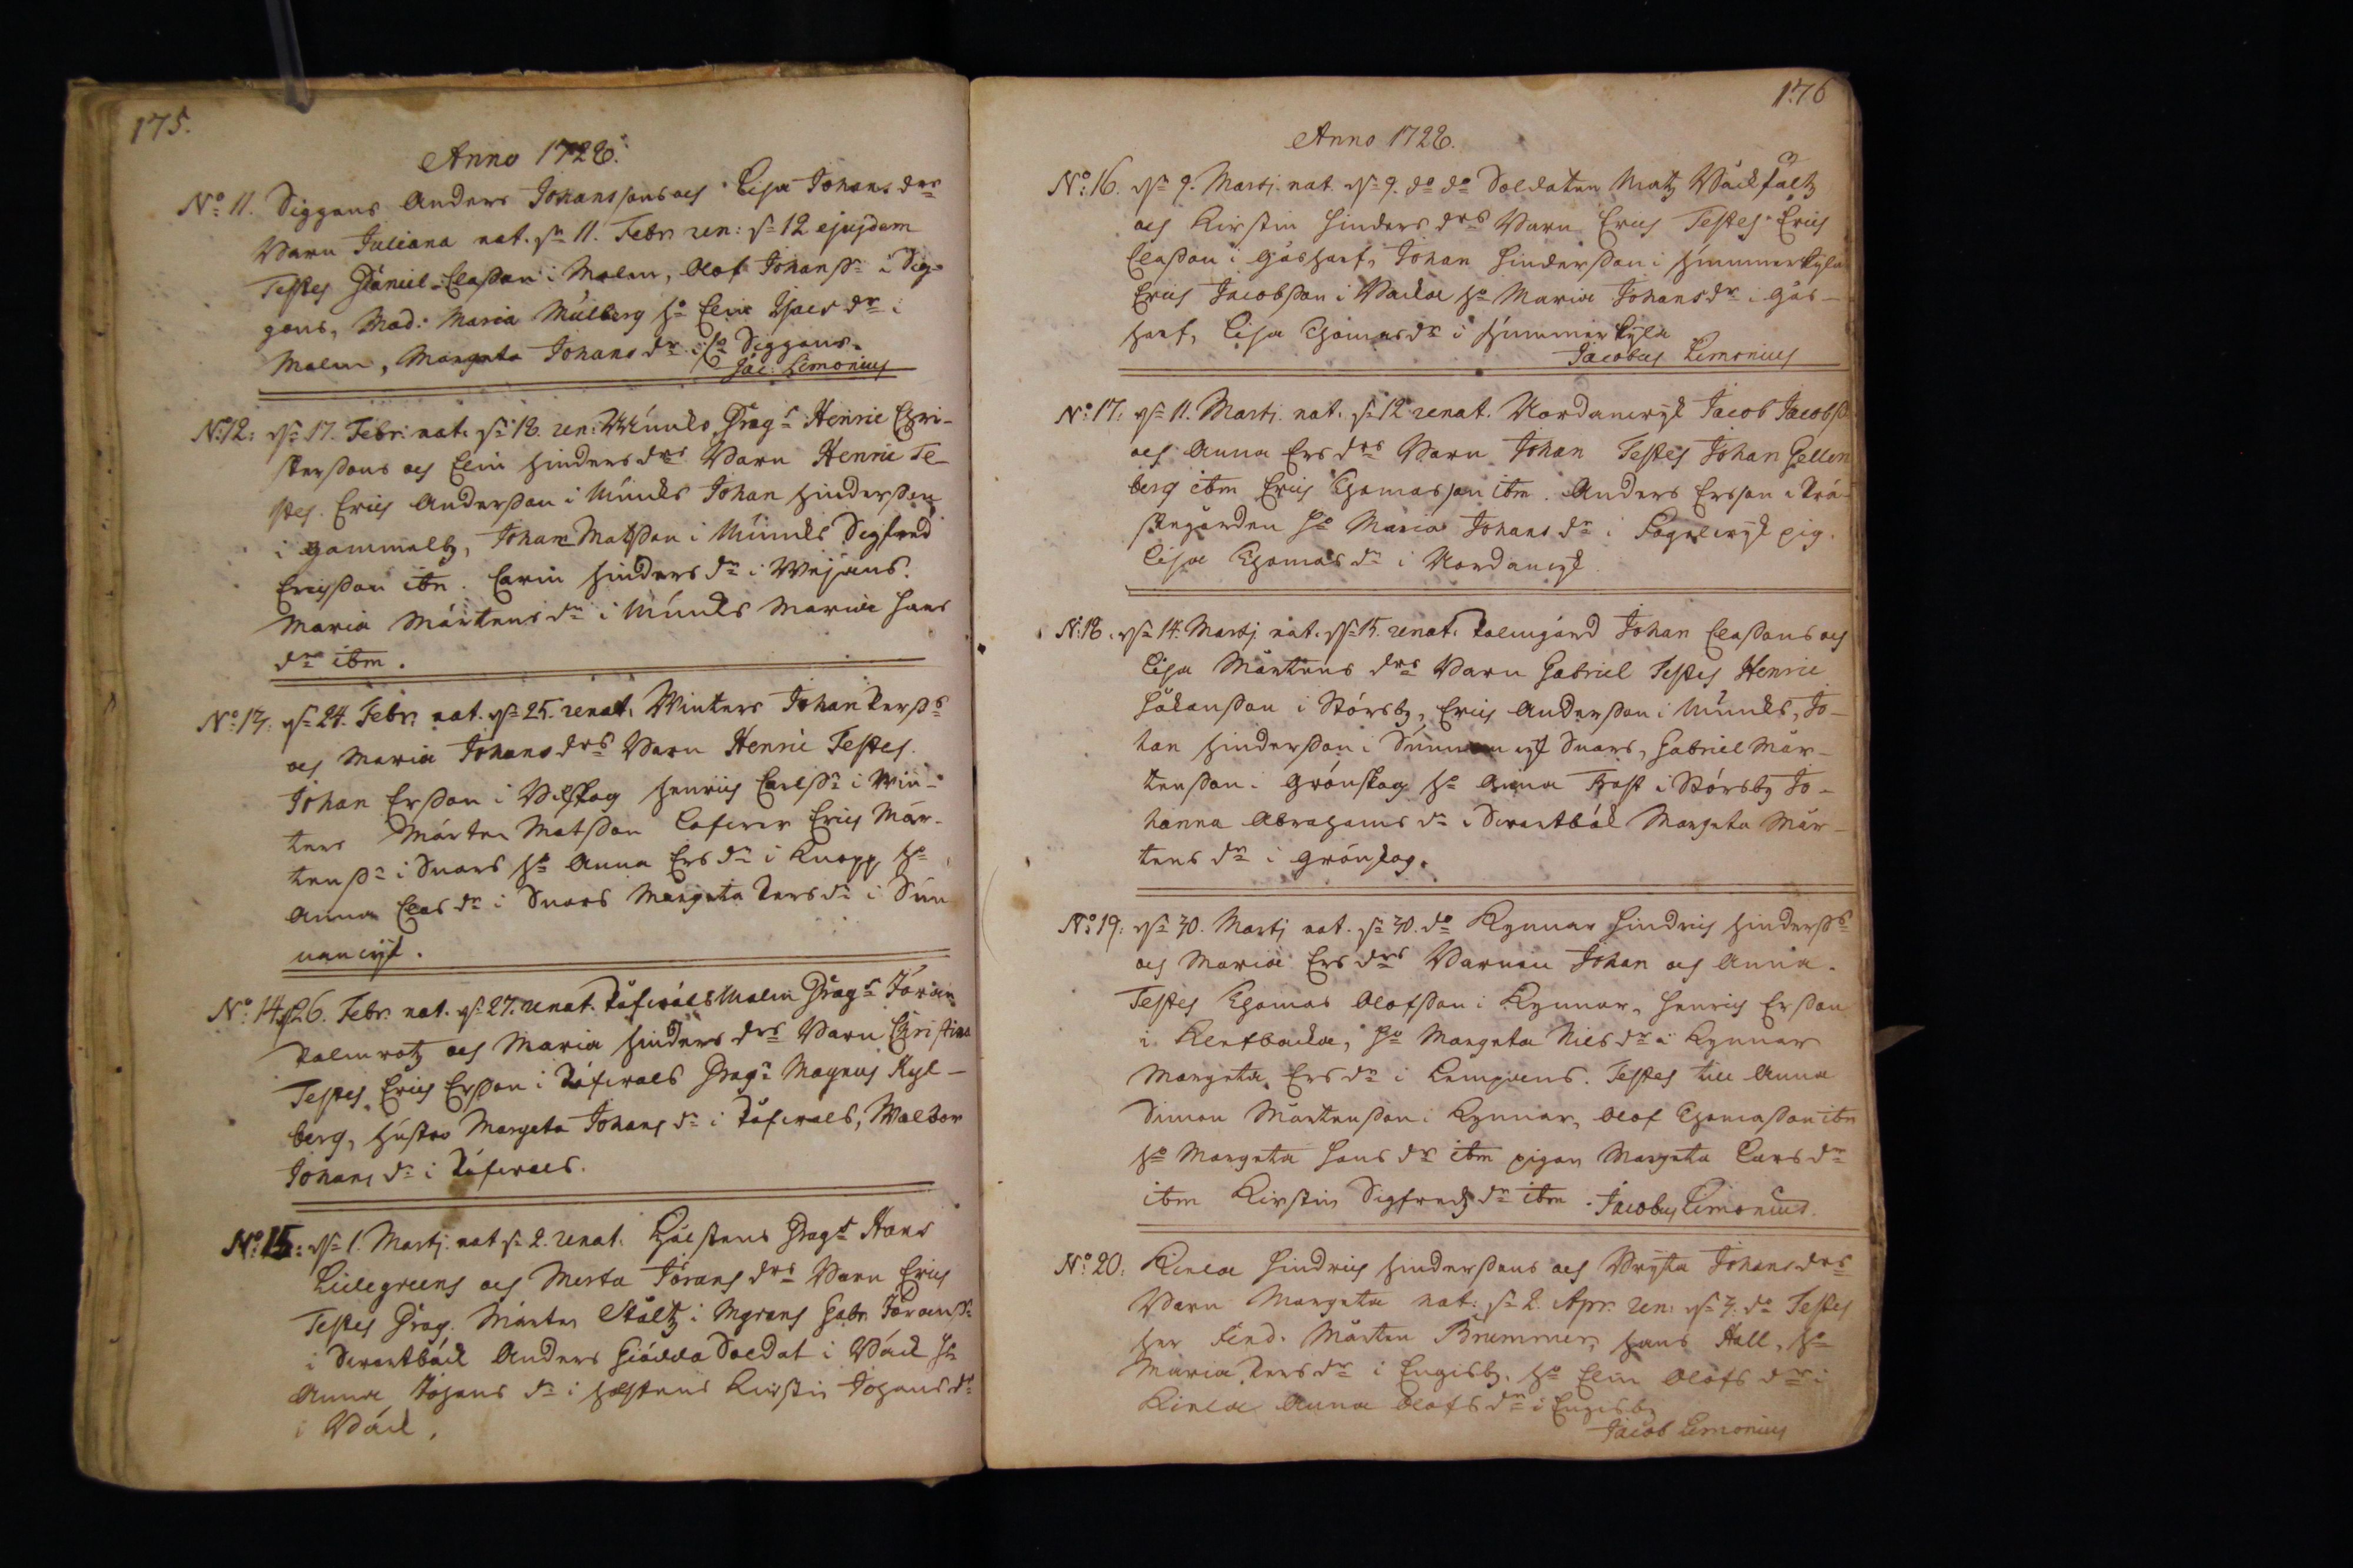 175.
Anno 1728.
No 11. Siggans Anders Johanssons och Lisa Johans drs
Barn Juliana nat. dn 11. Febr. ren: dn 12 ejusdem
Testes Daniel Classon i Malm, Olof Johanss: i Sig-
gans, Mad: Maria Mülberg ho Elin Isacs dr i
Malm, Margeta Johans dr i Siggans.
Jac: Limonius
No 12: dn 17. Febr: nat. dn 18. ren: Muncks Drag: Henric Chri-
sterssons och Elin Hinders drs Barn Henric Te-
stes. Erich Andersson i Muncks Johan Hindersson
i Gammelby, Johan Matsson i Muncks Sigfred
Erichsson itm. Carin Hinders dr i Wejans.
Maria Mårtens dr i Muncks Maria Hans
dr itm.
No 13: dn 24. Febr. nat. dn 25. renat. Winters Johan Perss:
och Maria Johans drs Barn Henric Testes.
Johan Ersson i Böleskog Henrich Carlss: i Win-
ters Mårten Matsson Erich Mår-
tenss: i Snars ho Anna Ers dr i Knapp, ho
Anna Clas dr i Snars Margeta Pers dr i Sun-
nanvijk.
No 14. dn 26. Febr. nat. dn 27. renat. Malm Drag: Jöran
Palmrotz och Maria Hinders drs Barn Christina
Testes, Erich Ersson i Drag: Magnus Kyl-
berg, Hustro Margeta Johans dr i Walbor
Johans dr i
No 15: dn 1. Martj. nat dn 2. renat. Drag: Hans
Lillegreens och Merta Jörans drs Barn Erich
Testes Drag. Mårten Ståltz i Mgrens Gabr. Jöranss:
i Swartbäck Anders Giädda Soldat i Bäck ho
Anna Johans dr i Kirstin Johans dr
i Bäck.
176
Anno 1728.
No: 16. dn 9. Martj. nat. dn 9. do do Soldaten Matz Wäckfältz
och Kirstin Hinders drs Barn Erich Testes Erich
Classon i Gäsharf, Johan Hindersson i Hummerkyla
Erich Jacobsson i Backa ho Maria Johans dr i Gäs-
harf, Lisa Thomas dr i Hummerkyla
Jacobus Limonius
No: 17: dn 11. Martj. nat. dn 12 renat. Nordanvijk Jacob Jacobss:
och Anna Ers drs Barn Johan Testes Johan Hellen
berg itm Erich Thomasson itm. Anders Ersson i Prä-
stegården ho Maria Johans dr i Fagelvijk pig.
Lisa Thomas dr i Nordanvijk
N: 18. dn 14. Martj nat. dn 15. renat. Palmgård Johan Classons och
Lisa Mårtens drs Barn Gabriel Testes Henric
Håkansson i Störsby, Erich Andersson i Muncks, Jo-
han Hindersson i Sunnanvijk Snars, Gabriel Mår-
tensson i Grönskog ho Anna Frost i Störsby Jo-
hanna Abrahams dr i Swartbäck Margeta Mår-
tens dr i Grönskog.
No: 19: dn 30. Martj nat. dn 30. do Kynnar Hindrich Hinderss:
och Maria Ers drs Barnen Johan och Anna.
Testes Thomas Olofsson i Kynnar, Henrich Ersson
i Klefbacka, ho Margeta Nils dr i Kynnar
Margeta Ers dr i Lempans. Testes till Anna
Simon Mårtensson i Kynnar, Olof Thomasson itm
ho Margeta Hans dr itm pigan Margeta Lars dr
itm Kirstin Sigfreds dr itm. Jacobus Limonius.
No: 20. Kinla Hindrich Hinderssons och Brijta Johans drs
Barn Margeta nat: dn 2. Apr. ren: dn 3. do Testes
Her Lend. Mårten Brummer, Hans Hall, ho
Maria Pers dr i Engisby. ho Elin Olofs dr i
Kinla Anna Olofs dr i Engisby
Jacob Limonius